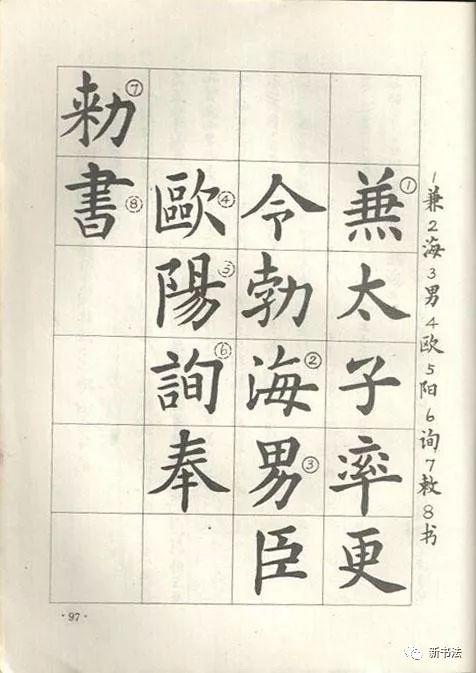 兼①太子率更
令勃海②男③臣
歐④陽⑤詢⑥奉
勑⑦書⑧
1兼2海3男4欧5阳6询7敕8书
·97·
新书法